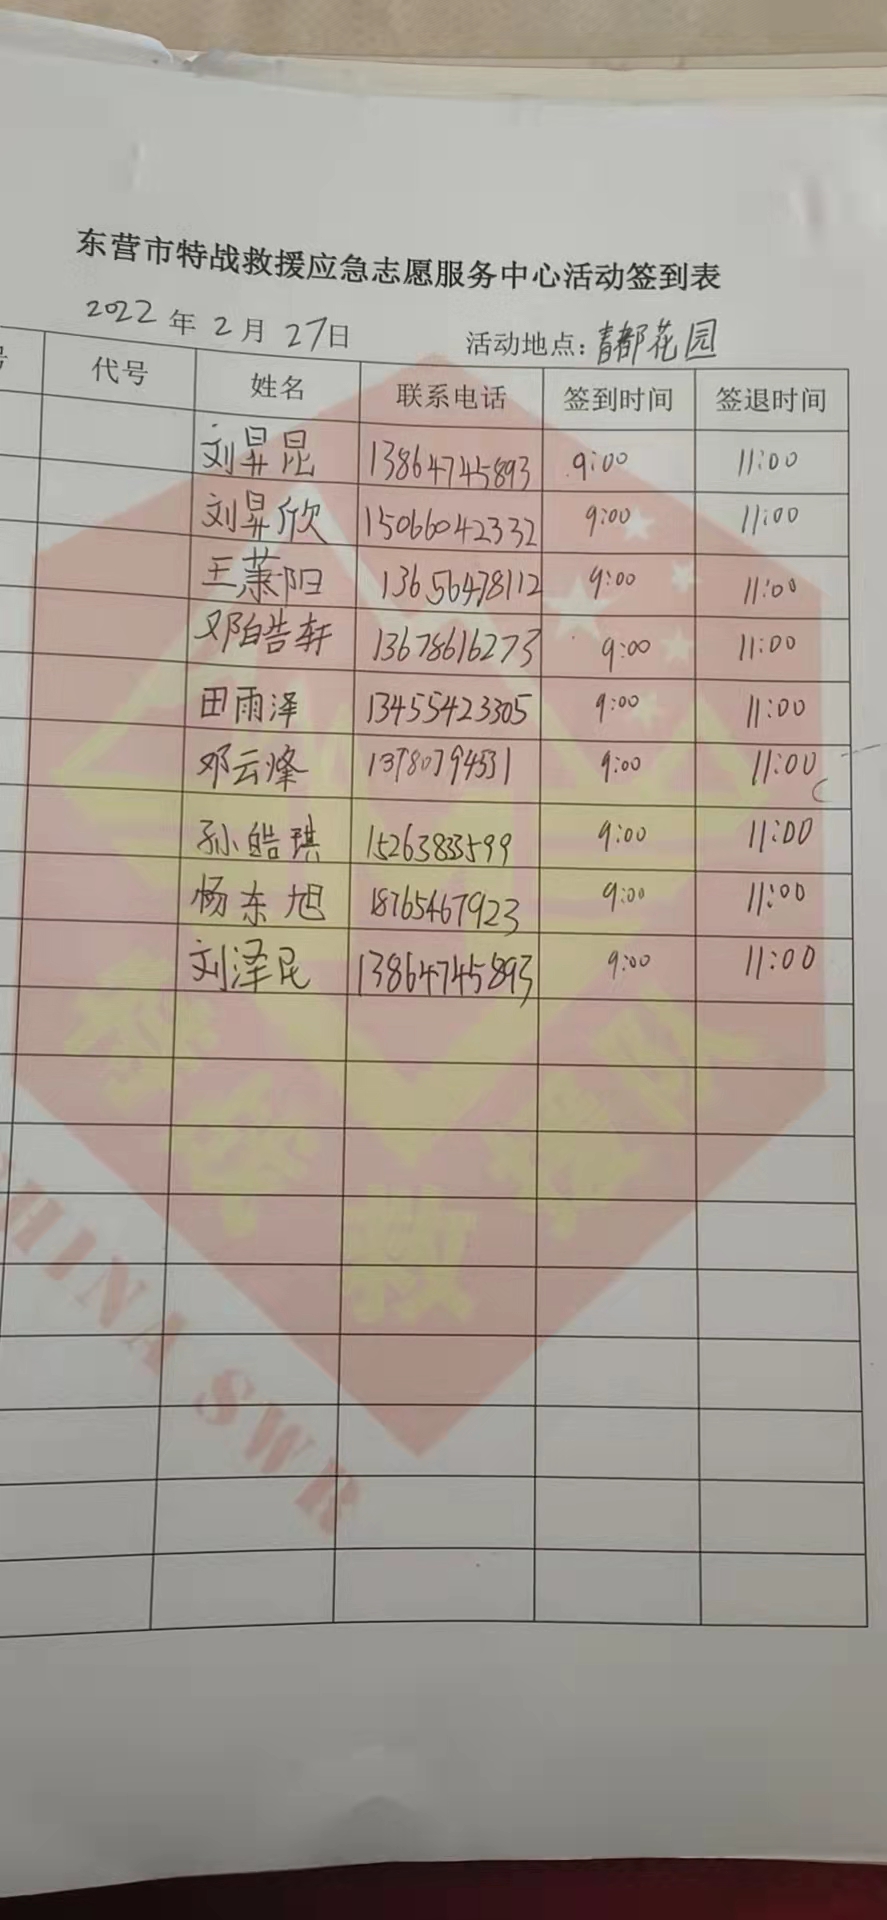 东营市特战救援应急志愿服务中心活动签到表
2022年2月27日 活动地点：青都花园
号 代号 姓名 联系电话 签到时间 签退时间
刘昇昆 13864745893 9:00 11:00
刘昇欣 15066042332 9:00 11:00
王萧阳 13656478112 9:00 11:00
邓皓轩 13678616273 9:00 11:00
田雨泽 13455423305 9:00 11:00
邓云烽 9:00 11:00
孙皓琪 15263833599 9:00 11:00
杨东旭 18765467923 9:00 11:00
刘泽昆 13864745893 9:00 11:00
救援队
CHINA SWR